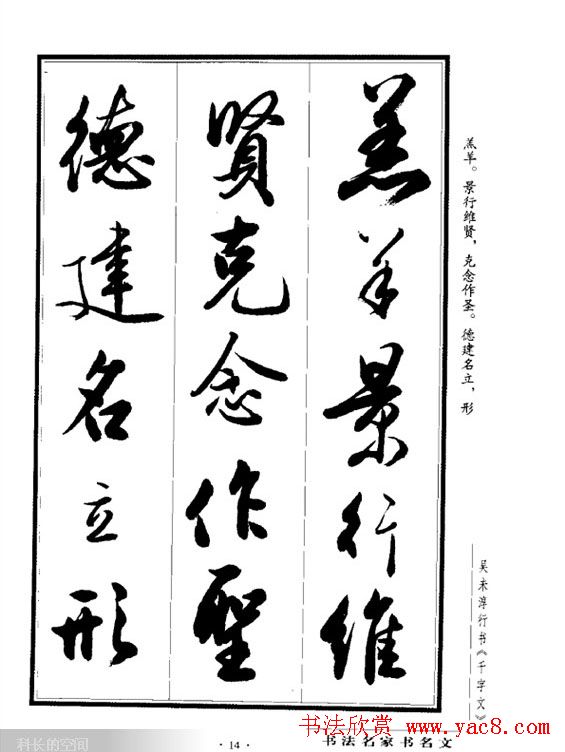 羔羊景行維
賢克念作聖
德建名立形
羔羊。景行维贤，克念作圣。德建名立，形
吴未淳行书《千字文》
书法欣赏 www.yac8.com
·14· 书法名家书名文
科长的空间